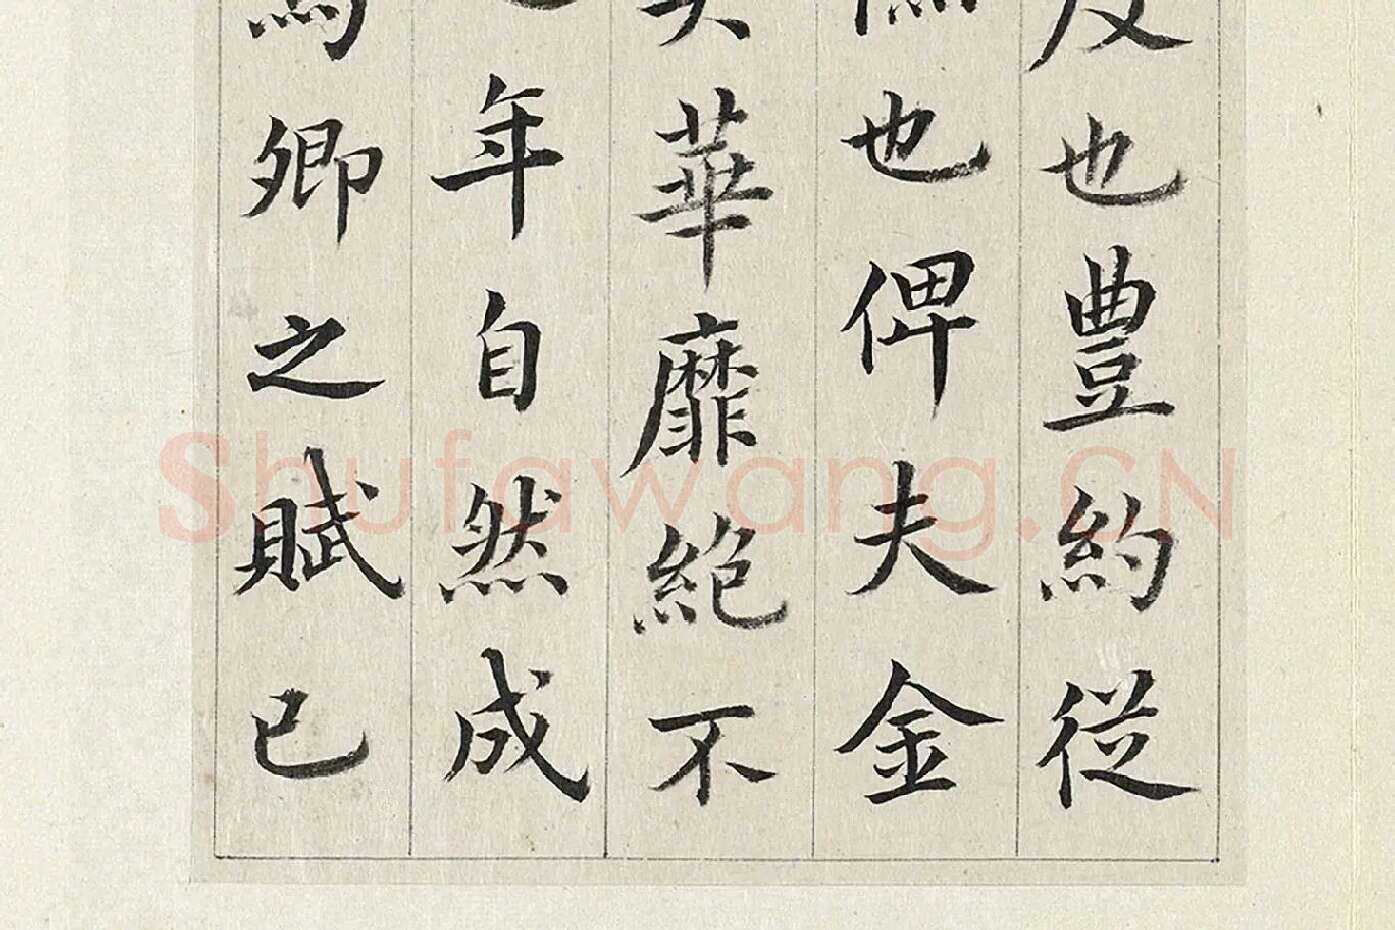 也豊約従
也俾夫金
華靡絶不
年自然成
卿之賦已
Shufawang.CN